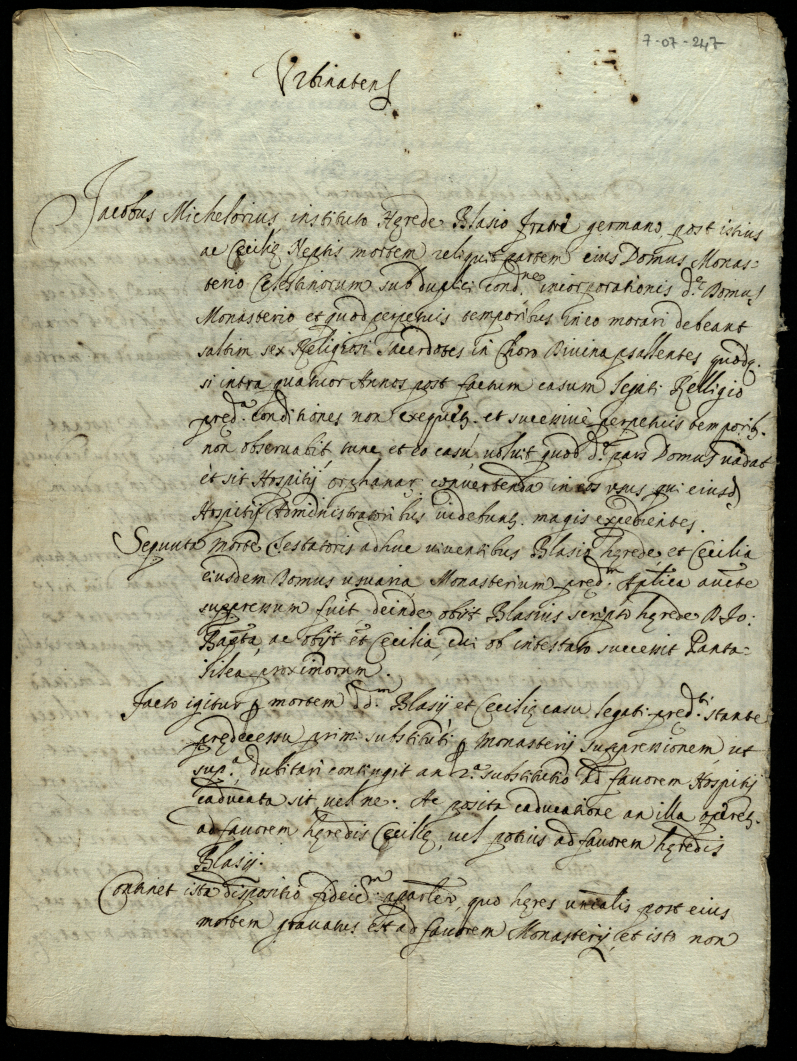 7-07-247
Urbinatens
Jacobus Michelorius instituto Hęrede Blasio fratre germano post istius
ac Cecilię Neptis mortem reliquit partem eius Domus Monas-
terio Celestinorum sub duplici condne, incorporationis da Domus
Monasterio et quod perpetuis temporibus in eo morari debeant
saltim sex Religiosi sacerdotes in Choro Divina psallentes, quodq.
si intra quatuor Annos post factum casum legati Relligio
preda conditiones non exequetr. et successive perpetuis temporib.
non observabit tunc et eo casu, voluit quod da pars Domus vadat
et sit Hospitij orphanar. convertenda in eos usus qui eiusd
Hospitij Administratoribus videbunt. magis expedientes.
Sequuta morte Testatoris adhuc viventibus Blasio hęrede et Cecilia
eiusdem Domus usuaria, Monasterium predm Aplica aucte
suppressum fuit deinde obijt Blasius scripto hęrede D. Jo:
Bapta, ac obijt et Cecilia, cui ob intestato successit Panta-
silea proximorum.
Facto igitur p mortem dm Blasij et Cecilię casu legati predti stante
prędecessu primi substituti p Monasterij suppressionem, ut
supa. Dubitari contingit an 2a substitutio ad favorem Hospitij
caducata sit, vel ne. Ac posita caducatione an illa operet.
ad favorem hęredis Cecilię, vel potius ad favorem hęredis
Blasij.
Continet ista dispositio fideicm: aparter, quo hęres unialis post eius
mortem gravatus est ad favorem Monasterij, et isto non